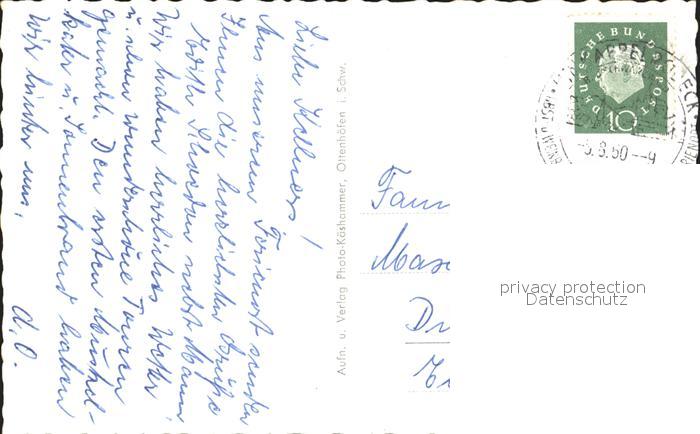 Liebe Kellners!
Aus unserem Ferienort senden
Ihnen die herzlichsten Grüße
Edith Schaedan nebst Mann.
Wir haben herrliches Wetter
u. schon wunderschöne Touren
gemacht. Den ersten Muskel-
kater u. Sonnenbrand haben
wir hinter uns.
d. O.
Aufn. u. Verlag Photo-Käshammer, Ottenhöfen i. Schw.
DEUTSCHE BUNDESPOST
10
-5.8.60--9
Fam
Mas
Dr
privacy protection
Datenschutz